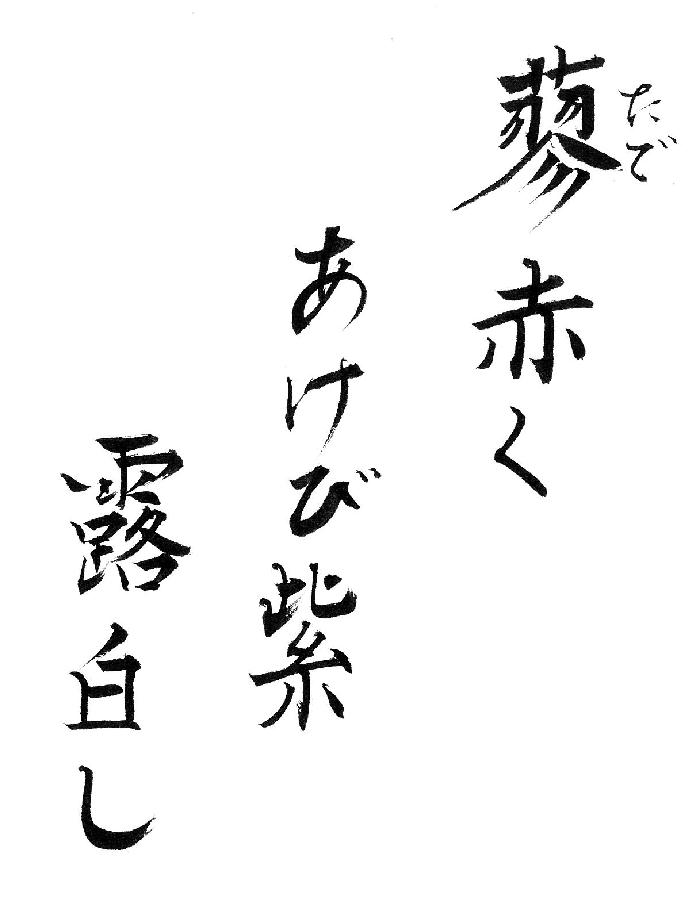 蓼赤く
たで
あけび紫
露白し